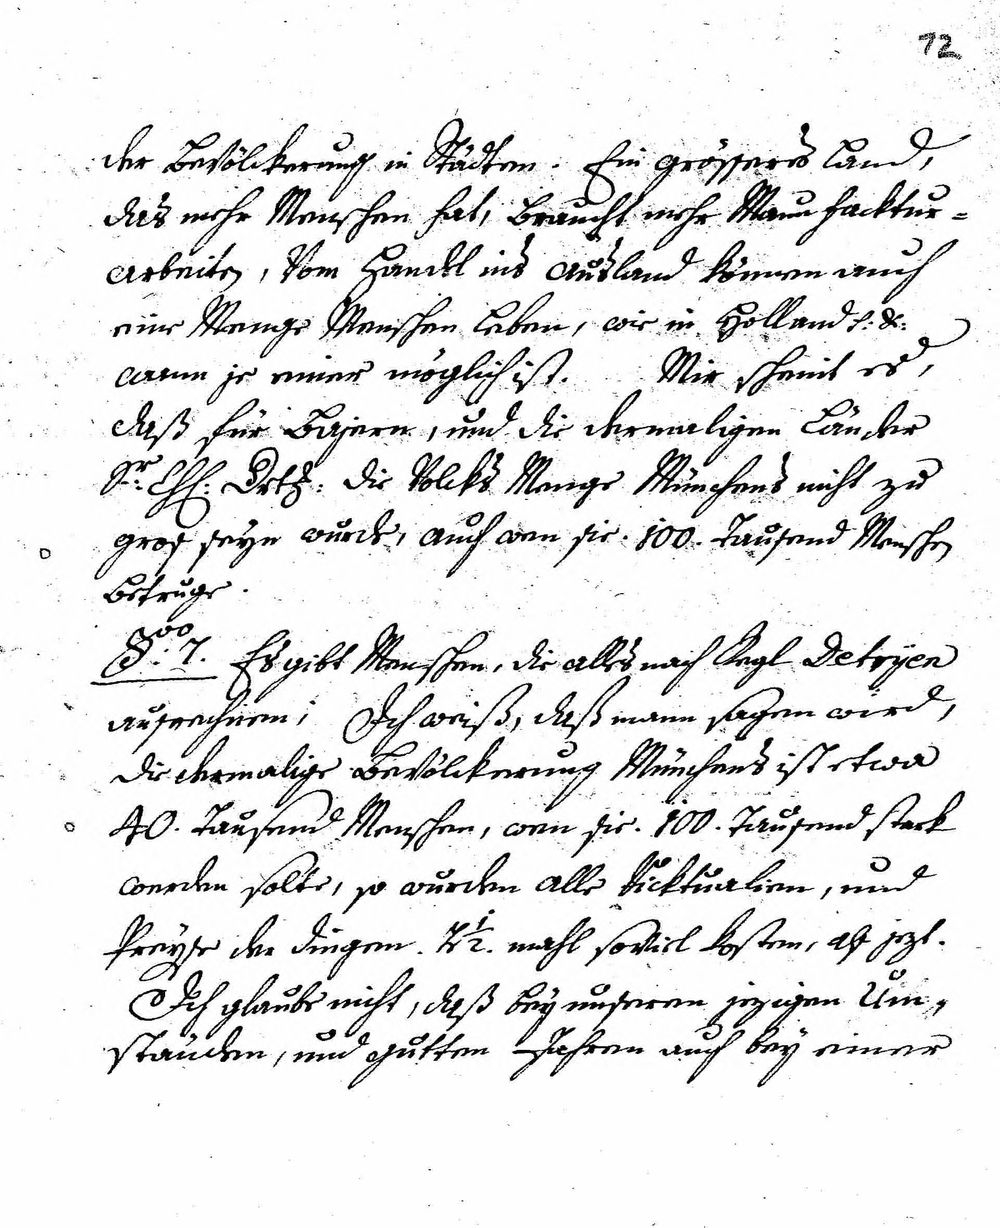 72
der Bevölckerung in Städten. Ein grösseres Land,
das mehr Menschen hat, braucht mehr Manufacktur=
arbeiten, Vom Handel ins Ausland können auch
eine Menge Menschen Leben, wie in Holland p: &:
wann je einer möglich ist. Mir scheint es,
daß für Bajern, und die dermaligen Länder
Sr: Chf: Drtl: die Volcks Menge Münchens nicht zu
gros seyn wurde, auch wen sie. 100. Tausend Menschen
betruge.
§: 7. Es gibt Menschen, die alles nach Regl Detryen
ausrechnen; Ich weiß, daß mann sagen wird,
die dermalige Bevölckerung Münchens ist etwa
40. Tausend Menschen, wen sie. 100. Tausend starck
werden solte, so wurden alle Vicktualien, und
Preyse der dingen. 2½. mahl soviel kosten, als jezt.
Ich glaube nicht, daß bey unseren jezigen Um=
ständen, und gutten Jahren auch bey einer